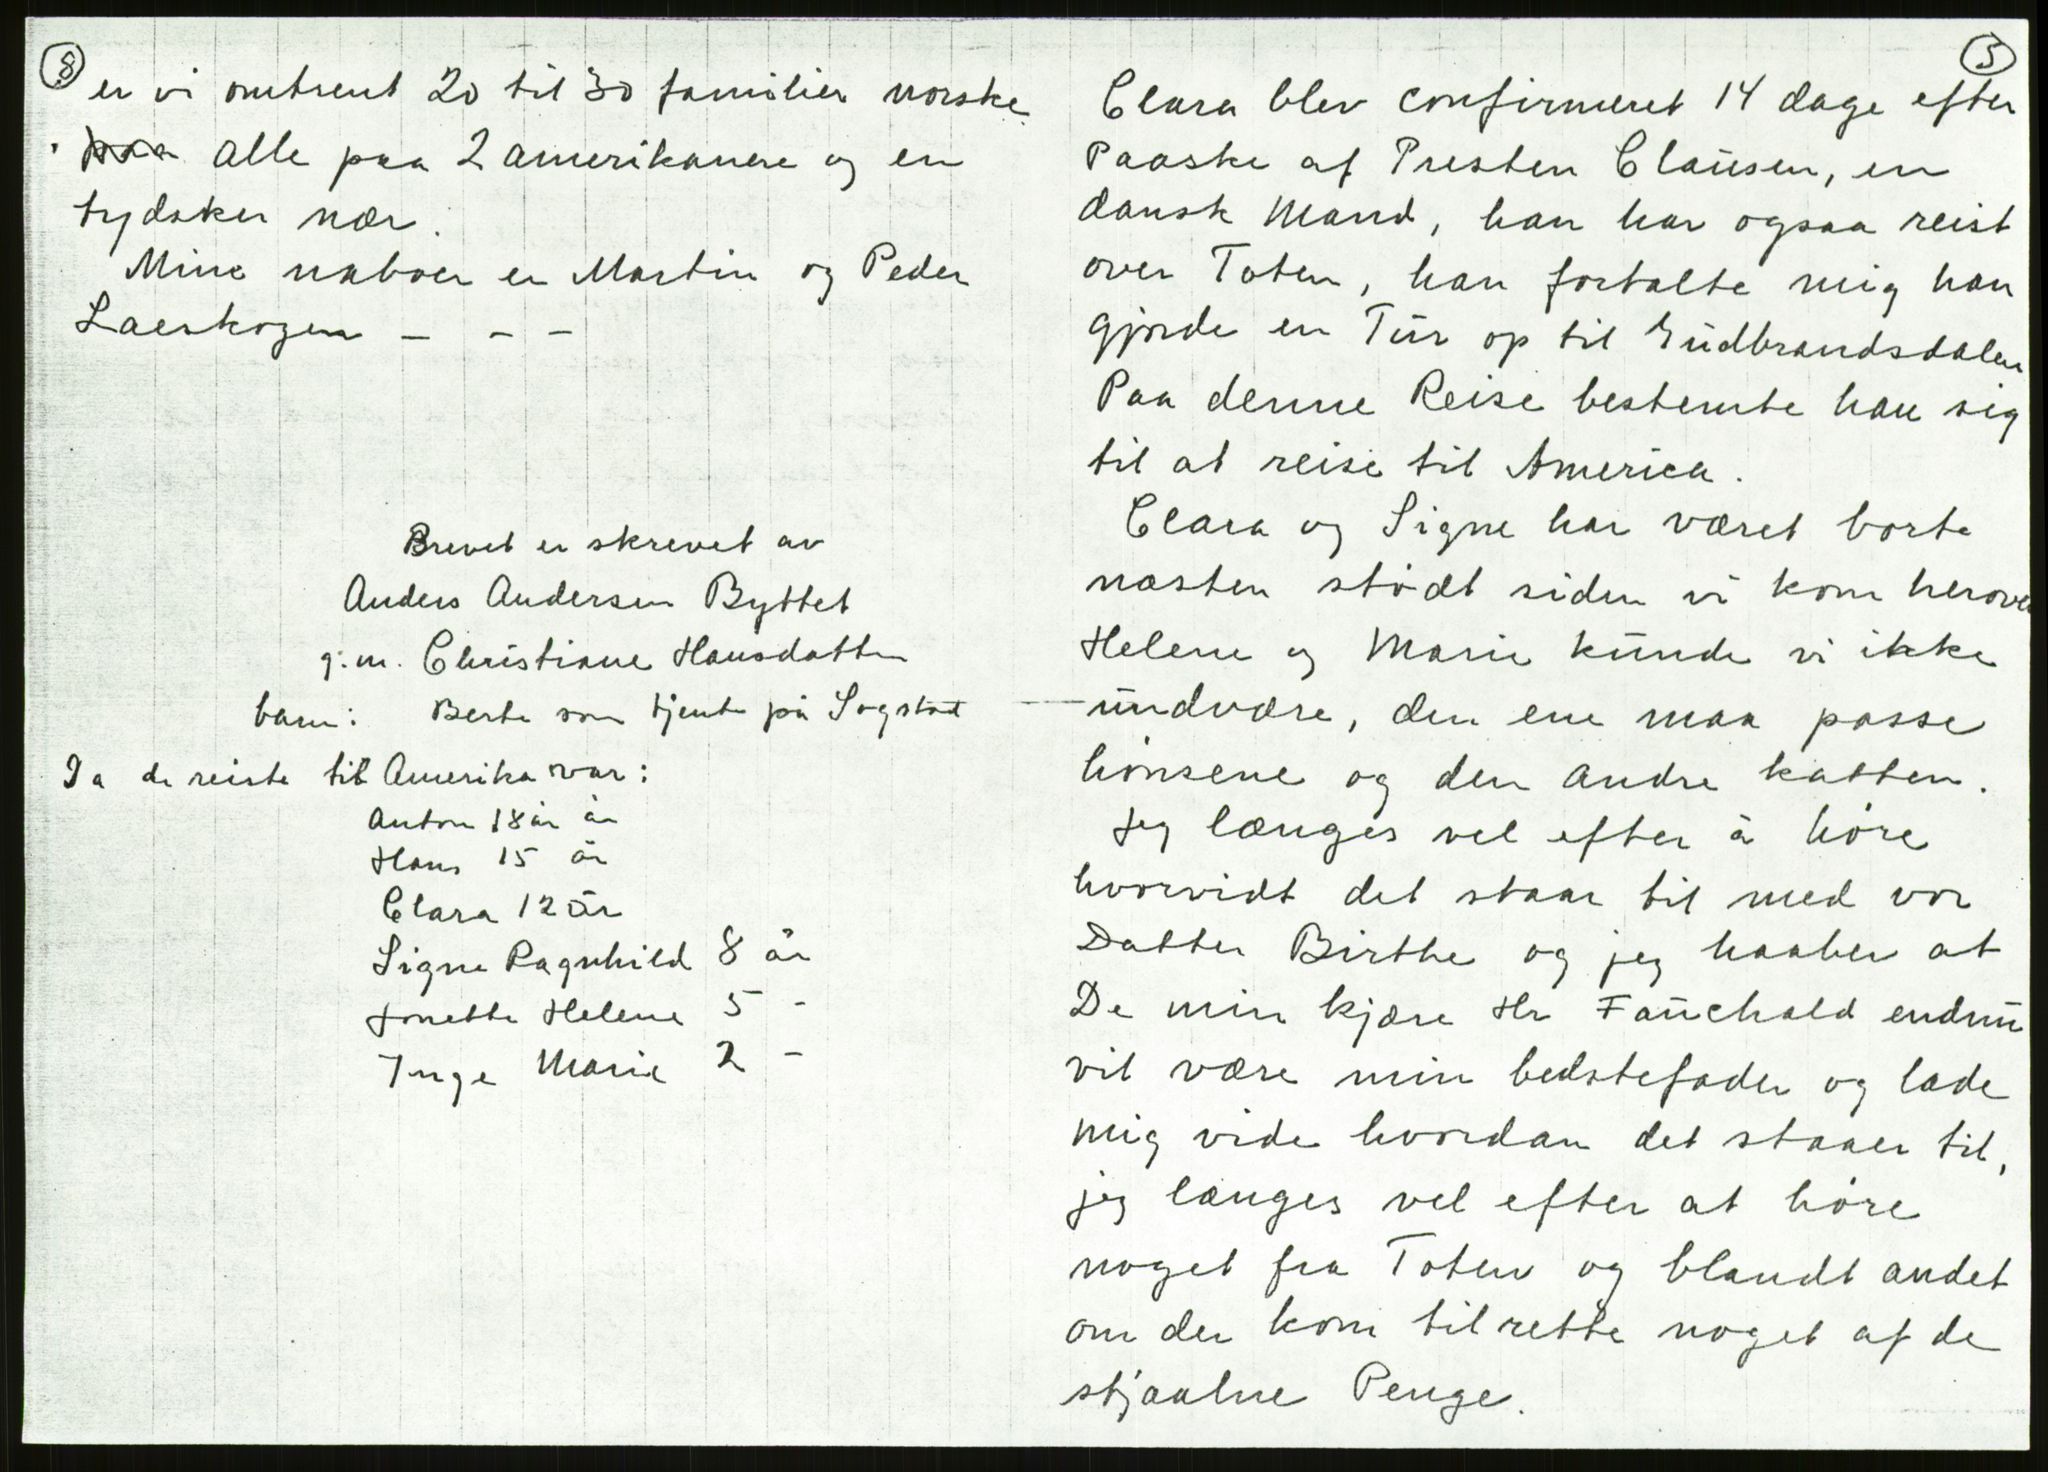 8
er vi omtrent 20 til 30 familier norske
alle paa 2 amerikanere og en
tydsker nær.
Mine naboer er Martin og Peder
Laeskogen - - -
Brevet er skrevet av
Anders Andersen Byttet
g.m. Christiane Hansdatter
barn: Berte som tjente på Sogstad
Da de reiste til Amerika var:
Anton 18 år år
Hans 15 år
Clara 12 år
Signe Ragnhild 8 år
Jonette Helene 5 -
Inge Marie 2 -
5
Clara blev confirmeret 14 dage efter
Paaske af Presten Clausen, en
dansk Mand, han har ogsaa reist
over Toten, han fortalte mig han
gjorde en Tur op til Gudbrandsdalen
Paa denne Reise bestemte han sig
til at reise til America.
Clara og Signe har været borte
næsten stødt siden vi kom herover
Helene og Marie kunde vi ikke
undvære, den ene maa passe
hønsene og den andre katten.
Jeg længes vel efter å høre
hvorvidt det staar til med vor
Datter Birthe og jeg haaber at
De min kjære Hr Fauchald endnu
vil være min bedstefader og lade
mig vide hvordan det staaer til,
jeg længes vel efter at høre
noget fra Toten og blandt andet
om der kom tilrette noget af de
stjaalne Penge.